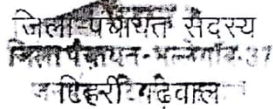 जिला पंचायत सदस्य
जिला पंचायत
टिहरी गढ़वाल